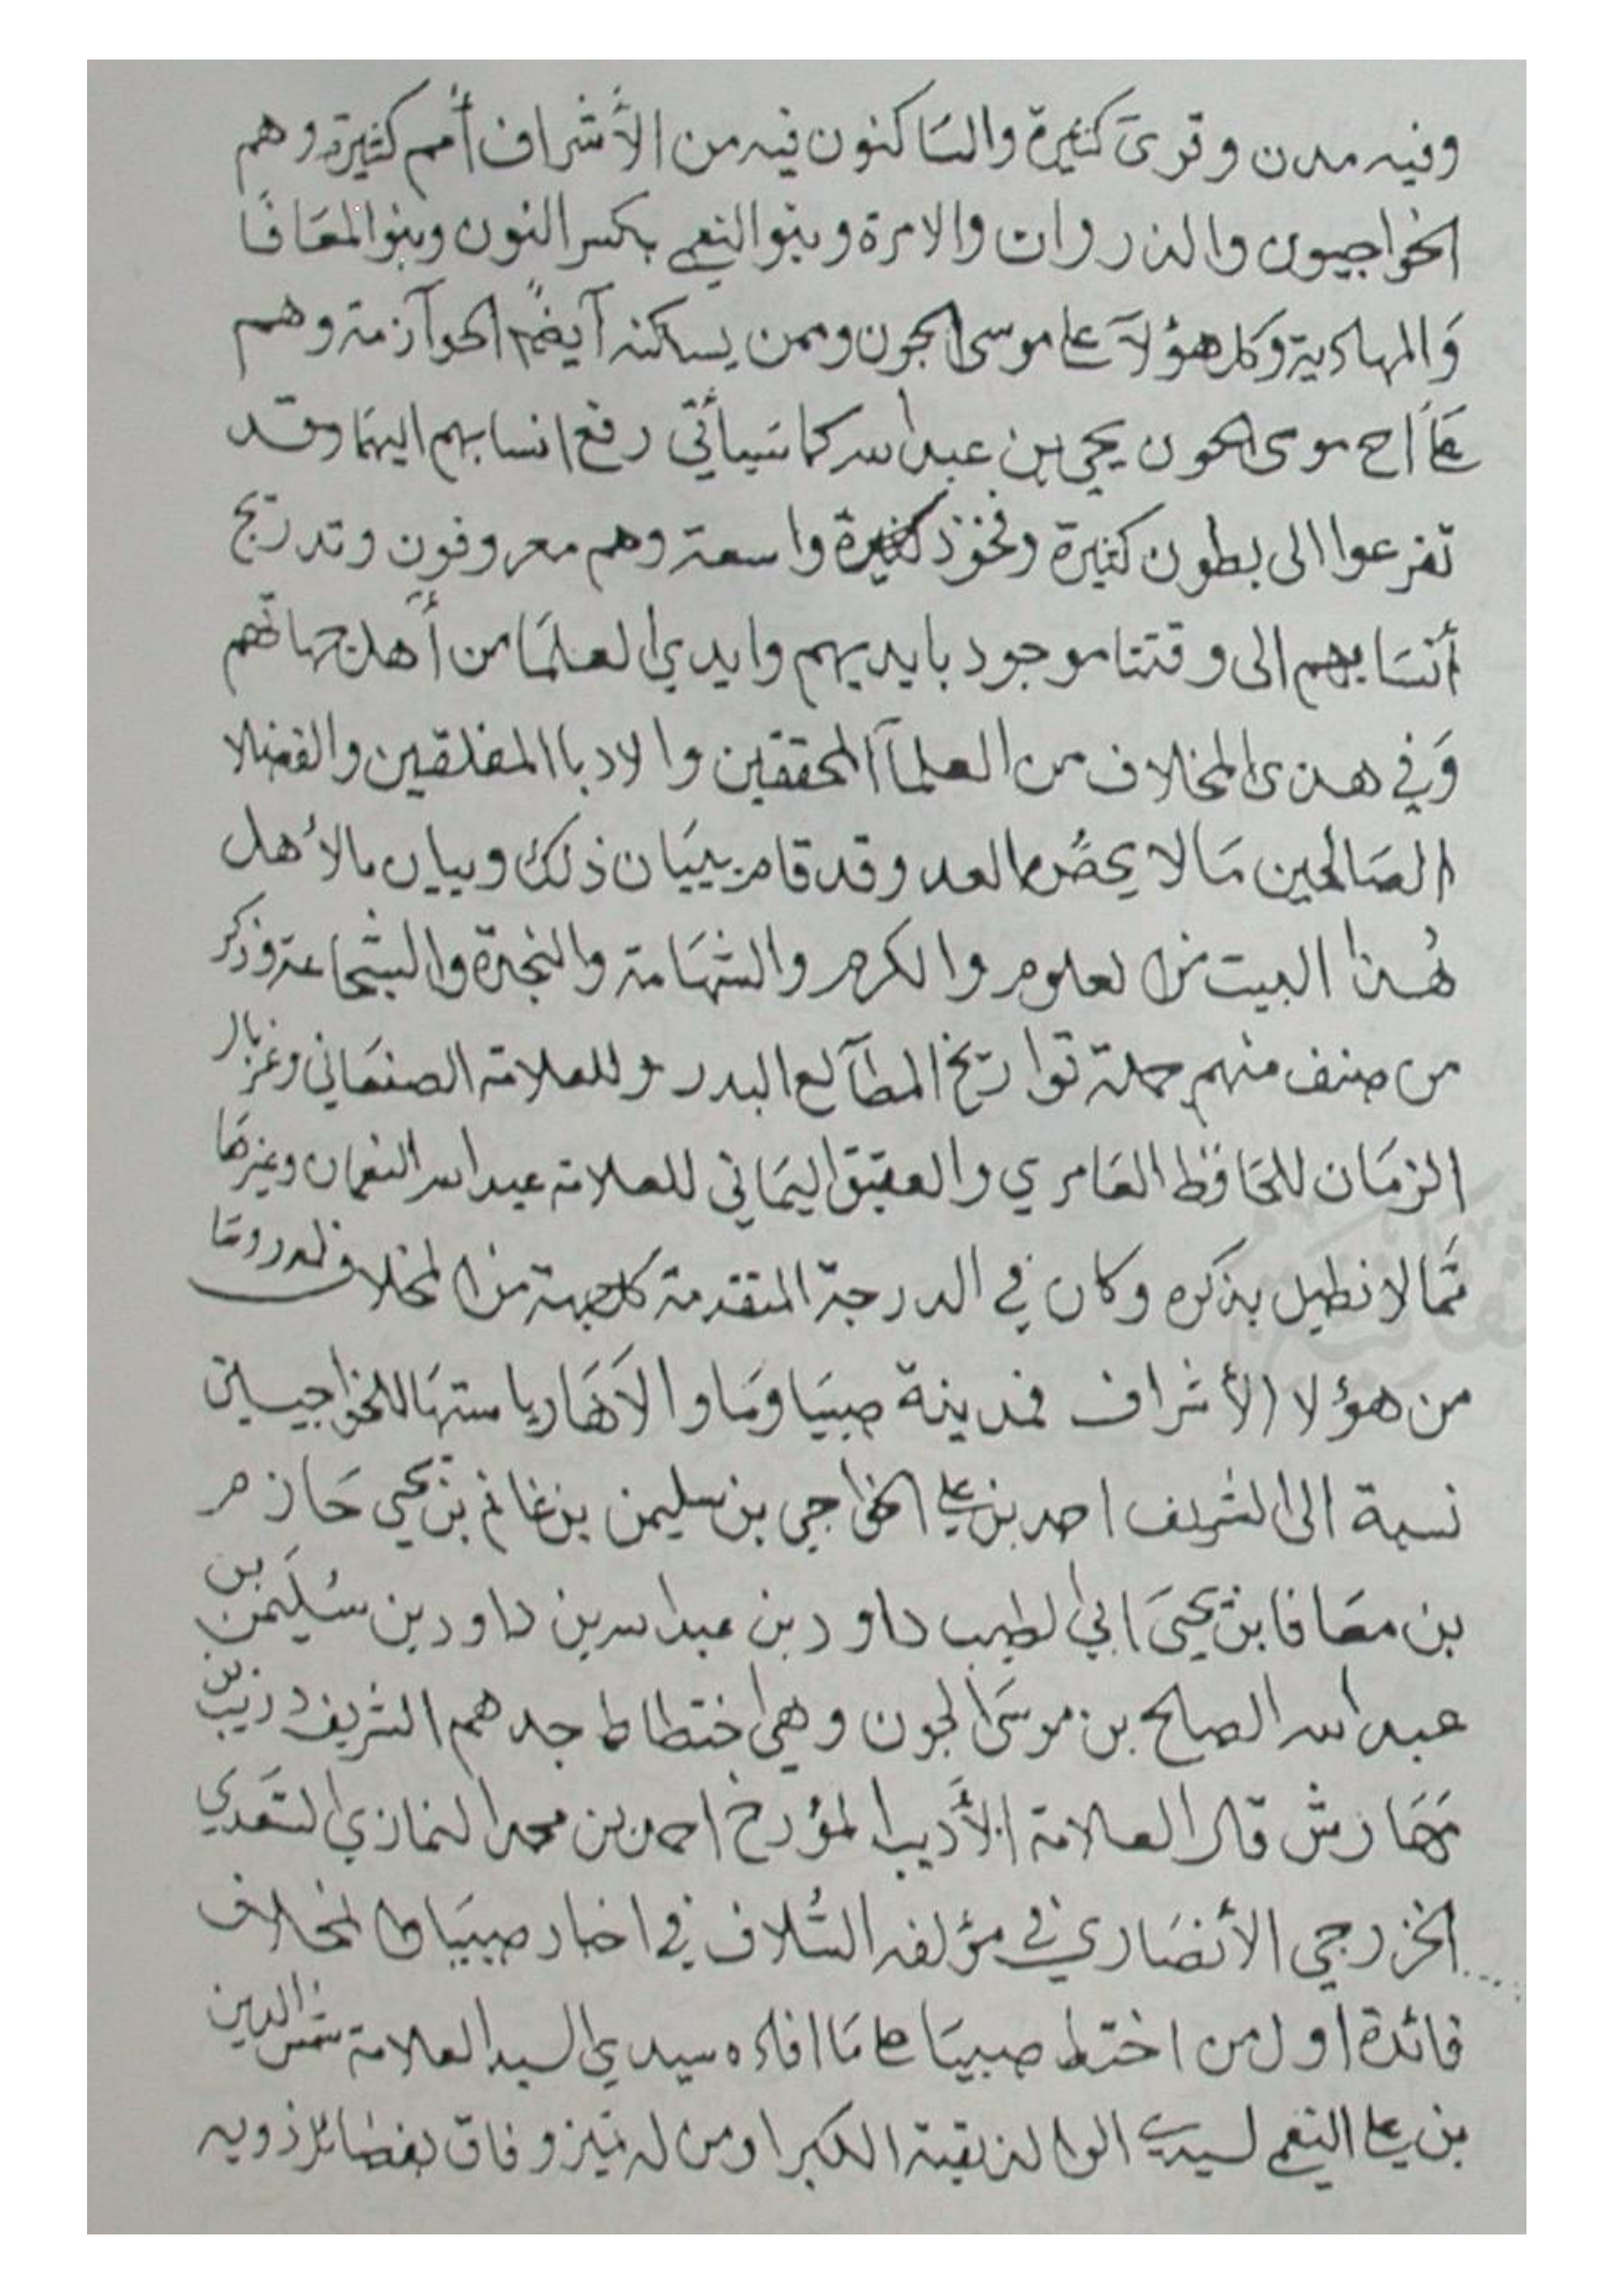 وفيه مدن وقرى كثيرة والساكنون فيه من الأشراف أمم كثيرة وهم
الخواجيون والذروات والامرة وبنو النعمي بكسر النون وبنو المعافا
والمهادية وكل هؤلآ على موسى الجون وممن يسكنه آيضاً الحوآزمة وهم
موسى الجون يحيى بن عبدالله كما سيأتي رفع انسابهم اليهما وقد
تفرعوا الى بطون كثيرة وفخوذ كثيرة واسعة وهم معروفون وتدريج
أنسابهم الى وقتنا موجود بايديهم وايدي العلما من أهل جهاتهم
وفي هذى المخلاف من العلمآ المحققين والادبا المفلقين والفضلا
الصالحين مالا العد وقد قام ببيان ذلك وبيان مالأهل
هذا البيت من العلوم والكرم والشهامة والنجدة والشجاعة وذكر
من صنف منهم جملة تواريخ البدر وللعلامة الصنعاني وغربال
الزمان للحافظ العامري والعقيق اليماني للعلامة عبدالله النعمان وغيرها
مما لا نطيل بذكره وكان في الدرجة المتقدمة كل جهة من المخلاف
من هؤلا الأشراف فمدينة صبيا وما والاها رياستها للخواجيين
نسبة الى الشريف احمد بن علي الخواجي بن سليمن بن غانم بن يحيى حازم
بن معافا بن يحيى ابي الطيب داود بن عبدالله بن داود بن سليمن بن
عبدالله الصالح بن موسى الجون وهي اختطاط جدهم الشريف دريب بن
مهارش قال العلامة الأديب المؤرخ احمد بن محمد النمازي السعدي
الخزرجي الأنصاري في مؤلفه السلاف في اخبار صبيا والمخلاف
فائدة اول من اختط صبيا على ما افاده سيدي السيد العلامة شمس الدين
بن علي النعمي لسيدي الوالد بقية الكبرا ومن له تميز وفاق بفضائل ذويه